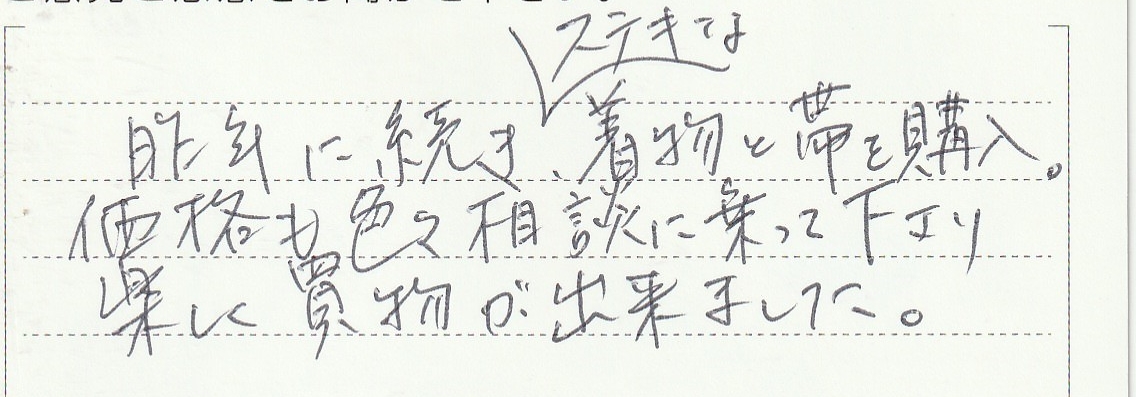 ステキな
昨年に続き、着物と帯を購入。
価格も色々相談に乗って下さり
楽しく買物が出来ました。